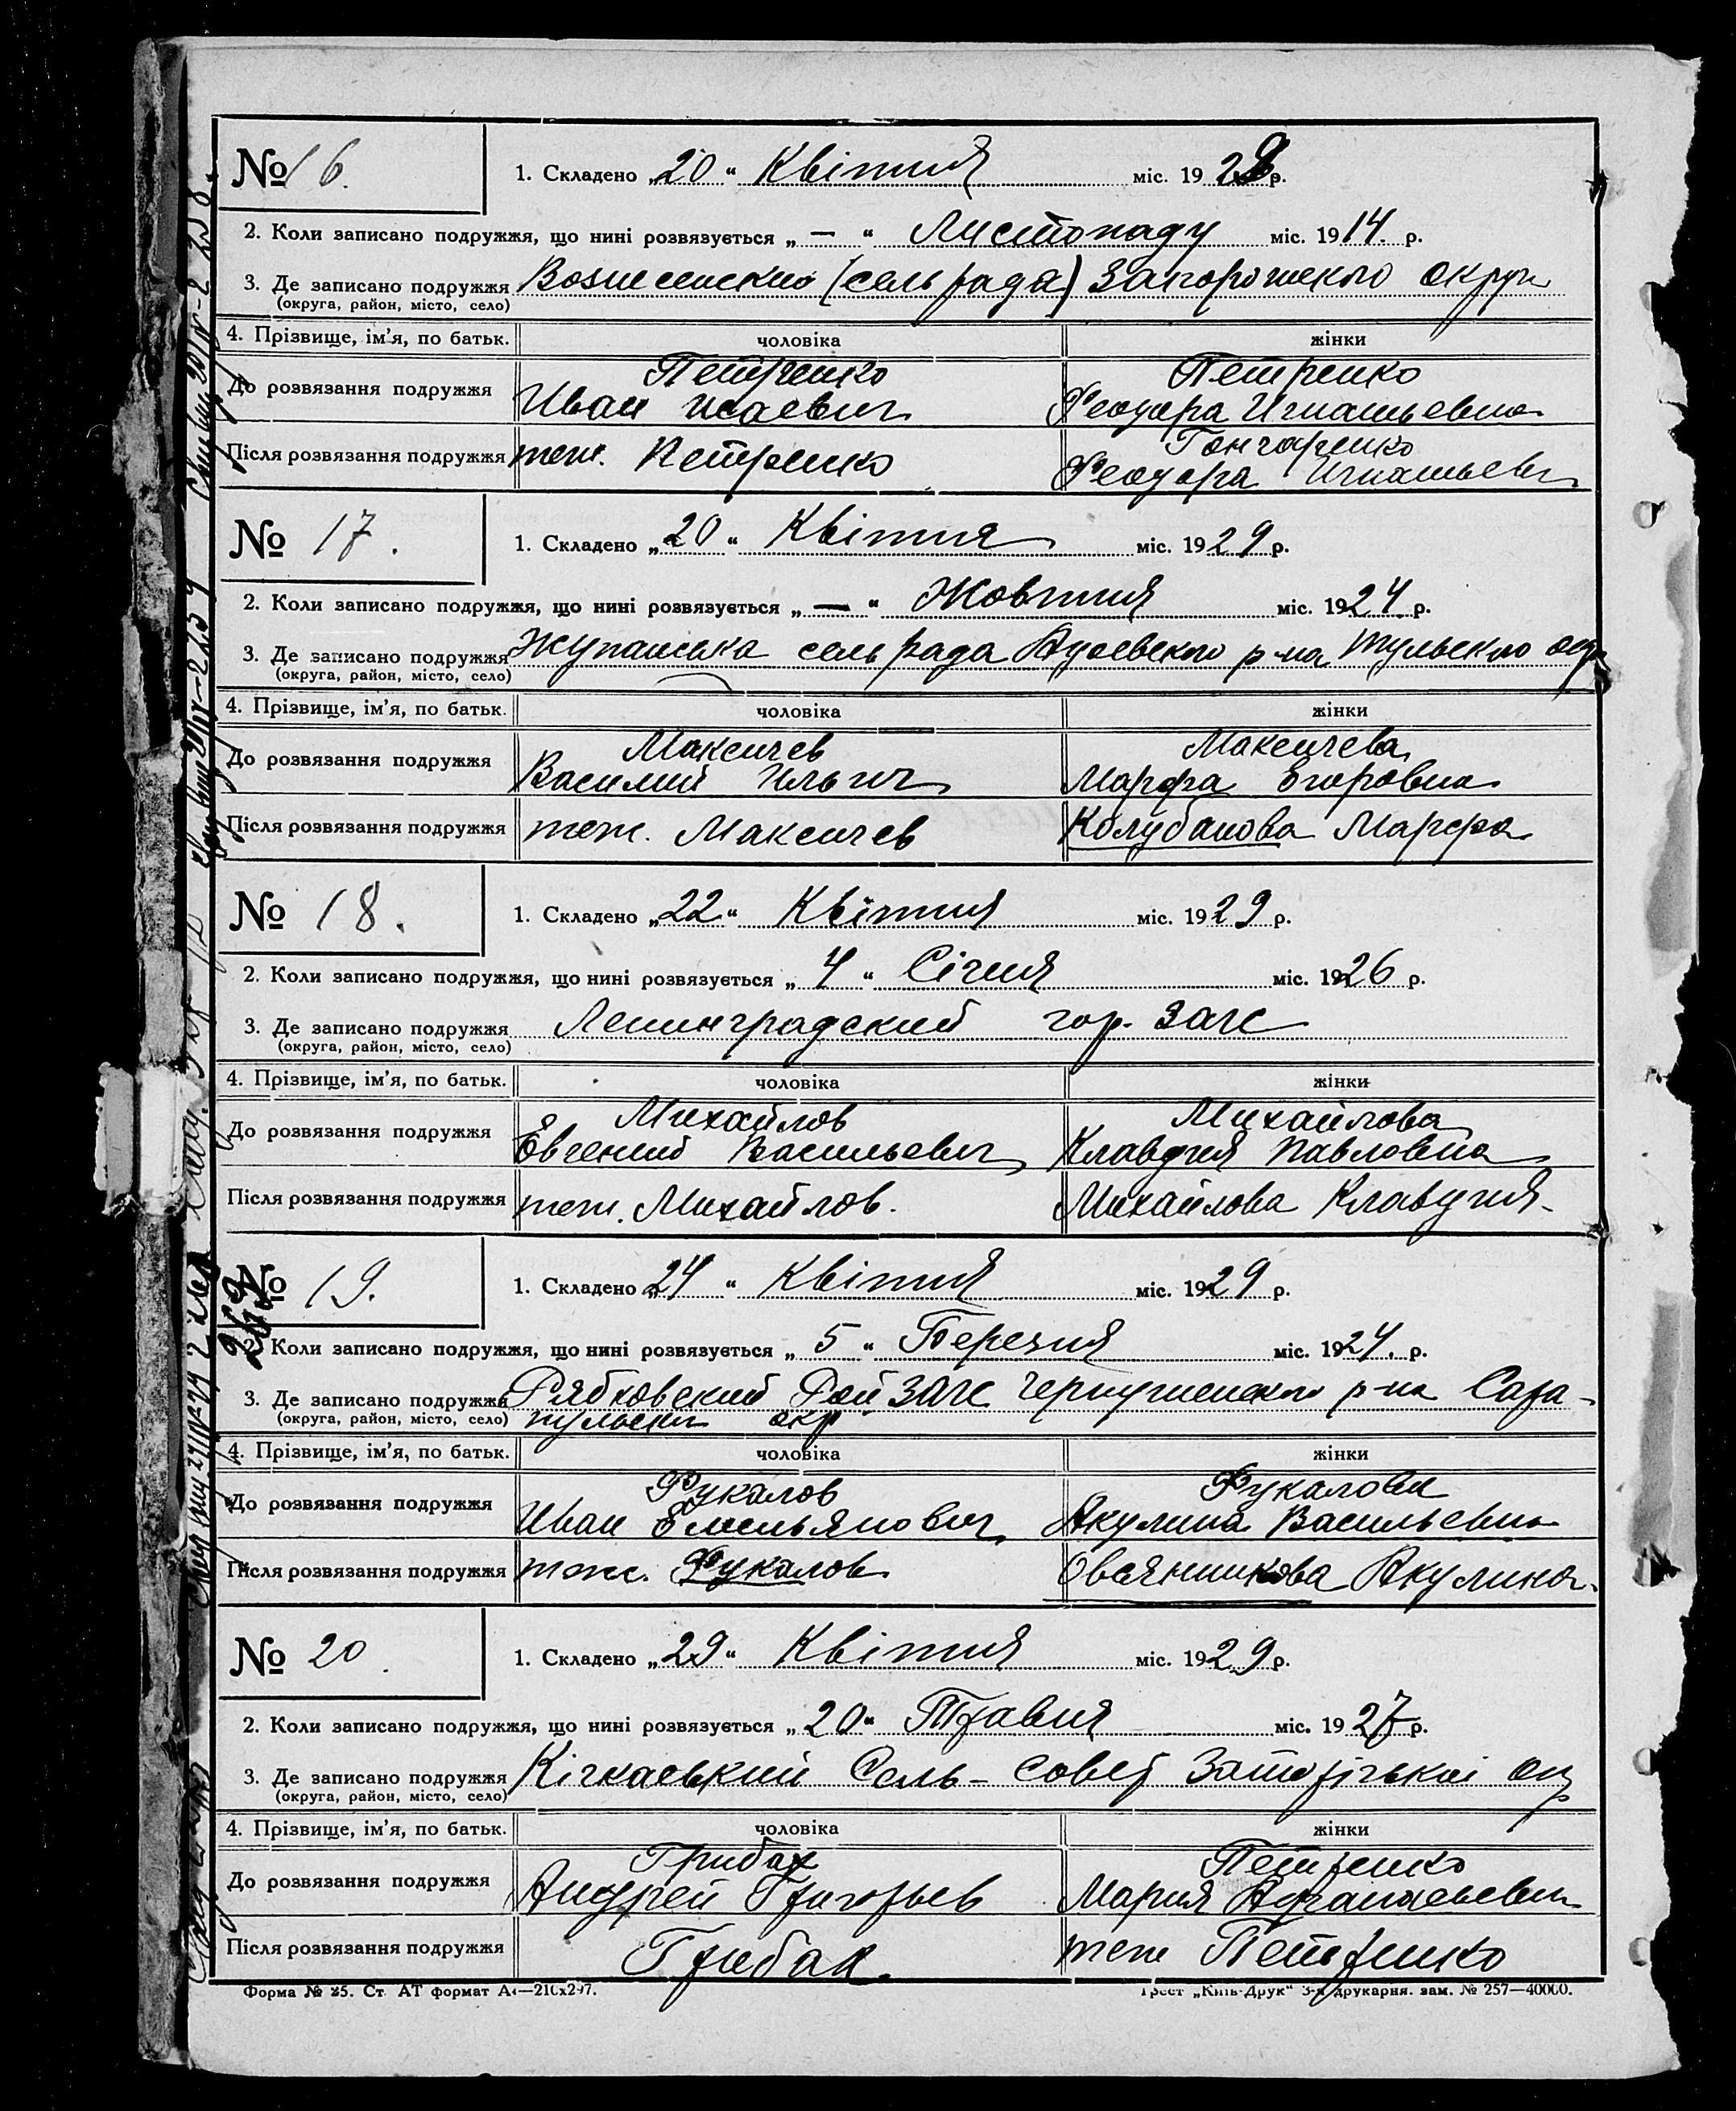 № 16.
1. Складено „20“ Квітня міс. 1929 р.
2. Коли записано подружжя, що нині розвязується „ — “ Листопаду міс. 1914. р.
3. Де записано подружжя Вознесенский (сель рада) Запорожского округи
(округа, район, місто, село)
4. Прізвище, ім'я, по батьк. чоловіка жінки
До розвязання подружжя Петренко Иван Исаевич Петренко Феодора Игнатьевна
Після розвязання подружжя теж. Петренко Гончаренко Феодора Игнатьевн
№ 17.
1. Складено „20“ Квітня міс. 1929 р.
2. Коли записано подружжя, що нині розвязується „ — “ Жовтня міс. 1924. р.
3. Де записано подружжя сель рада р-на Тульского окр
(округа, район, місто, село)
4. Прізвище, ім'я, по батьк. чоловіка жінки
До розвязання подружжя Максичев Василий Ильич Максичева Марфа Егоровна
Після розвязання подружжя теж. Максичев Колубанова Марфа
№ 18.
1. Складено „22“ Квітня міс. 1929 р.
2. Коли записано подружжя, що нині розвязується „4“ Січня міс. 1926 р.
3. Де записано подружжя Ленинградский гор. Загс
(округа, район, місто, село)
4. Прізвище, ім'я, по батьк. чоловіка жінки
До розвязання подружжя Михайлов Евгений Васильевич Михайлова Клавдия Павловна
Після розвязання подружжя теж. Михайлов. Михайлова Клавдия.
№ 19.
1. Складено „24“ Квітня міс. 1929 р.
2. Коли записано подружжя, що нині розвязується „5“ Березня міс. 1924. р.
3. Де записано подружжя Рябковский Рай ЗАГС Чернушенского р-на Сара-
(округа, район, місто, село) пульски окр.
4. Прізвище, ім'я, по батьк. чоловіка жінки
До розвязання подружжя Фукалов Иван Емельянович Фукалова Акулина Васильевна
Після розвязання подружжя теж. Фукалов Овсянникова Акулина.
№ 20.
1. Складено „29“ Квітня міс. 1929 р.
2. Коли записано подружжя, що нині розвязується „20“ Травня міс. 1927 р.
3. Де записано подружжя Кічкаський Сель-совет Запорізької окр
(округа, район, місто, село)
4. Прізвище, ім'я, по батьк. чоловіка жінки
До розвязання подружжя Грибак Андрей Григорьев Петренко Мария Афанасьевн
Після розвязання подружжя Грибак. теж Петренко
Форма № 25. Ст. АТ формат А4—210х297. Трест „Київ-Друк“ 3-я друкарня. зам. № 257—40000.